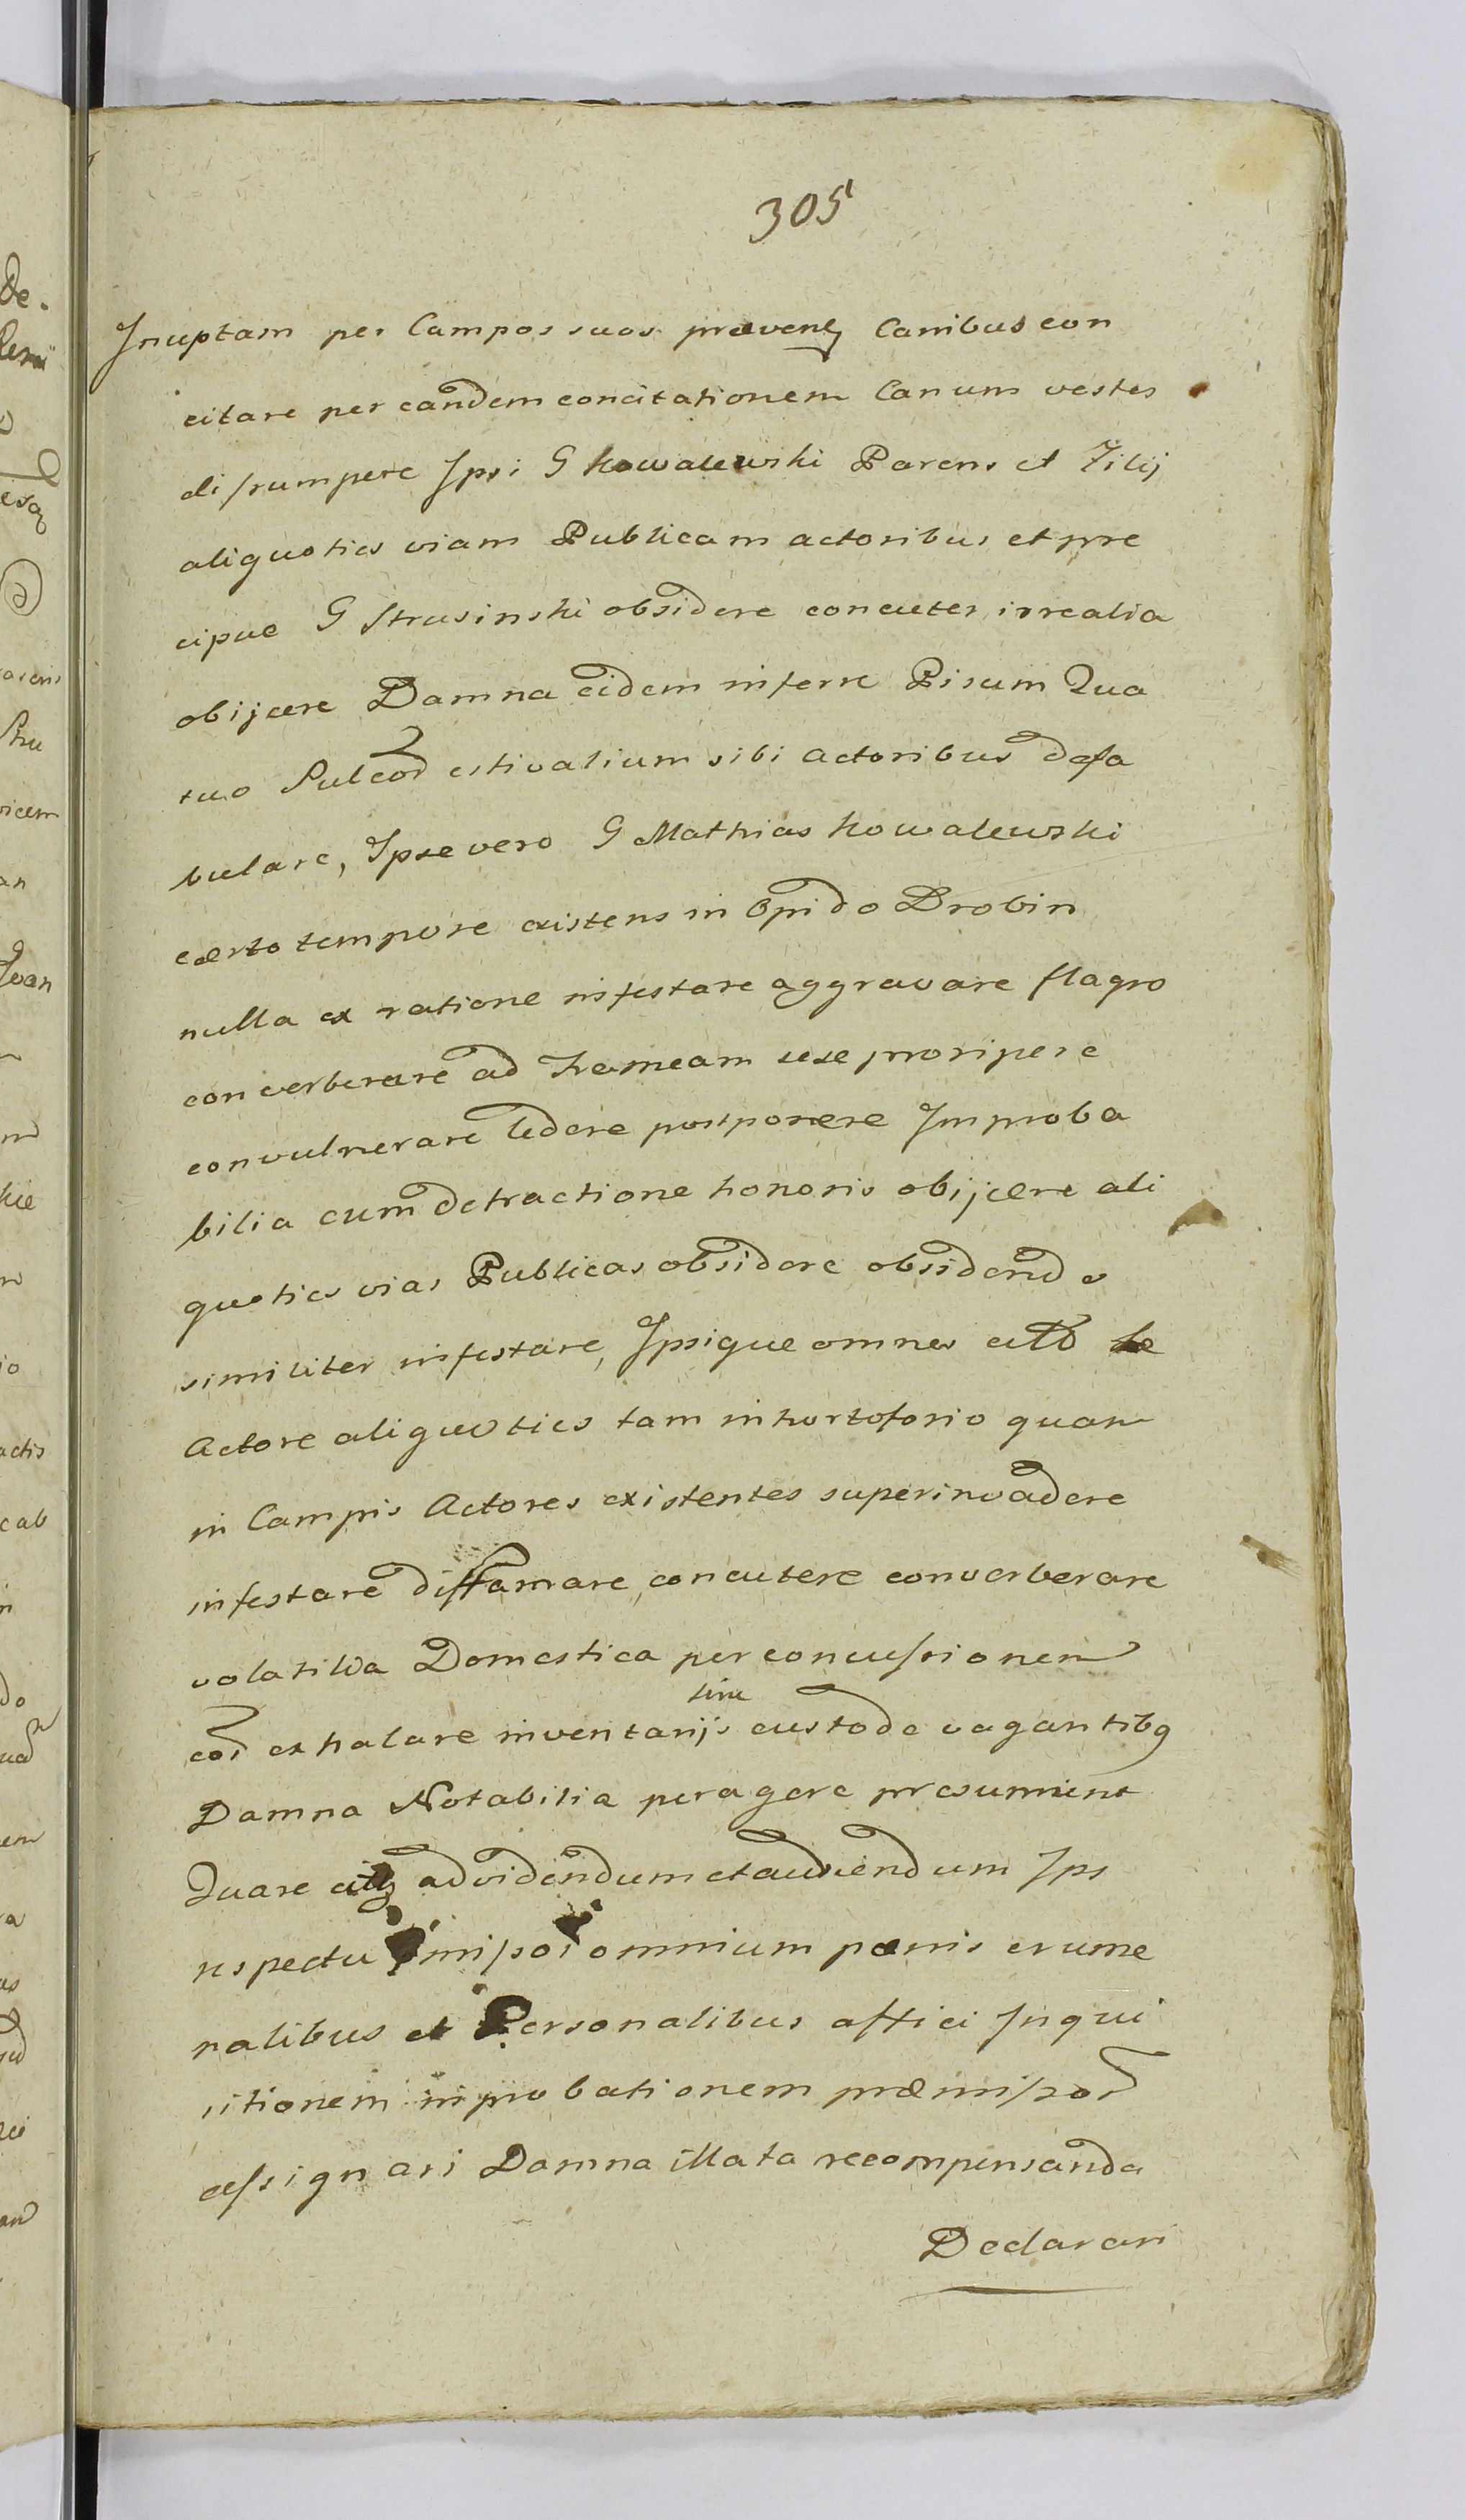 305
Inuptam per Campos suos prævenq Canibus con
citare per eandem concitationem Canum vestes
disrumpere Ipsi G Kowalewski Parens et Filij
aliquoties viam Publicam actoribus et pre
cipue G Strusinski obsidere concuter irrealia
obijcere Damna eidem inferre Pisum Qua
tuo Sulcor estivalium sibi actoribus defa
bulare, Ipse vero G Mathias Kowalewski
certo tempore existens in Opido Drobin
nulla ex ratione infestare aggravare flagro
converberare ad frameam sese proripere
convulnerare ledere postponere Improba
bilia cum detractione honoris obijcere ali
quoties vias Publicas obsidere obsidendo
similiter infestare, Ipsique omnes citt
Actore aliquoties tam in hortoforio quam
in Campis Actores existentes superinvadere
infestare diffamare, concutere converberare
volatilia Domestica per concussionem
eor exhalare inventarijs sine custode vagantibq
Damna Notabilia peragere presumunt
Quare citt ad videndum et audiendum Ips
respectu pmissor omnium pænis crume
nalibus et Personalibus affici Inqui
sitionem in probationem præmissor
assignari Damna illata recompensanda
Declarari
de.
actis
cab
do